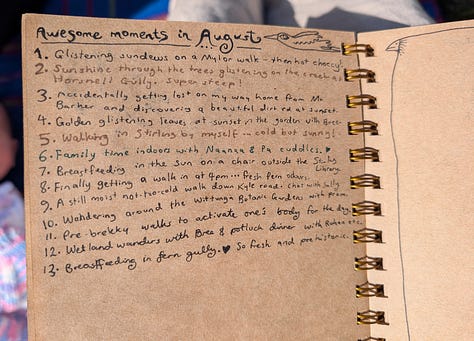 Awesome moments in August
1. Glistening sundews on a Mylor walk - then hot choccy!
2. Sunshine through the trees glistening on the creek at
Horsnell Gully. Super steep!
3. Accidentally getting lost on my way home from Mt
Barker and discovering a beautiful dirt rd at sunset.
4. Golden glistening leaves at sunset in the garden with Bree.
5. Walking in Stirling by myself... cold but sunny!
6. Family time indoors with Naanaa & Pa cuddles. ♥
7. Breastfeeding in the sun on a chair outside the
Library.
8. Finally getting a walk in at 4pm... fresh fern odours.
9. A still moist not-too-cold walk down Kyle road. Chat with Sally
10. Wandering around the Wittunga Botanic Gardens with pram.
11. Pre-brekky walks to activate one's body for the day.
12. Wetland wanders with Bree & potluck dinner with
13. Breastfeeding in fern gully. ♥ So fresh and prehistoric.